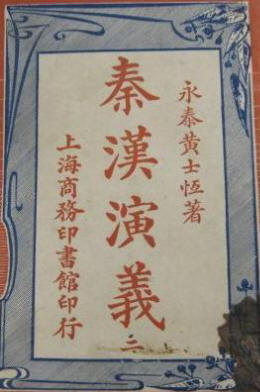 永泰黄士恆著
秦漢演義
三
上海商務印書館印行